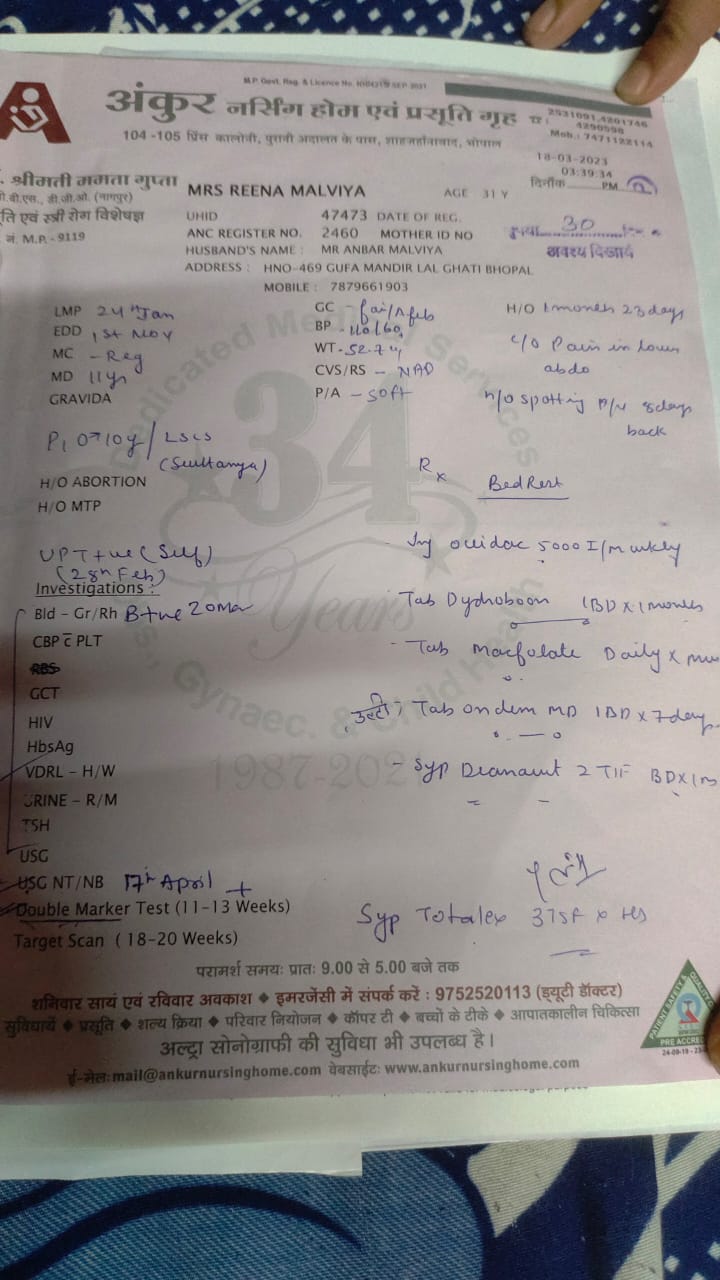 M.P. Govt. Reg. & Licence No.
अंकुर नर्सिंग होम एवं प्रसूति गृह
2531091,4201746
4290598
Mob.: 7471122114
104 -105 प्रिंस कालोनी, पुरानी अदालत के पास, शाहजहाँनाबाद, भोपाल
18-03-2023
03:39:34
PM
दिनाँक
श्रीमती ममता गुप्ता
बी.बी.एस., डी.जी.ओ. (नागपुर)
ति एवं स्त्री रोग विशेषज्ञ
नं. M.P. - 9119
MRS REENA MALVIYA AGE 31 Y
UHID 47473 DATE OF REG.
ANC REGISTER NO. 2460 MOTHER ID NO
HUSBAND'S NAME : MR ANBAR MALVIYA
ADDRESS : HNO-469 GUFA MANDIR LAL GHATI BHOPAL
MOBILE : 7879661903
30
अवश्य दिखायें
LMP 24th Jan
EDD 1st Nov
MC - Reg
MD 11yr
GRAVIDA
GC - fair/Afeb
BP - 110/60
WT - 52.7
CVS/RS - NAD
P/A - Soft
H/O 1 month 23 days
C/O Pain in lower
abdo
H/O spotting P/V 8days
back
LSCS
H/O ABORTION
H/O MTP
Rx
Bed Rest
UPT +ve (Self)
(28th Feb)
Investigations :
Bld - Gr/Rh B+ve
CBP c̄ PLT
RBS
GCT
HIV
HbsAg
VDRL - H/W
URINE - R/M
TSH
USG
USG NT/NB 17th April +
Double Marker Test (11-13 Weeks)
Target Scan ( 18-20 Weeks)
- Inj 5000 I/m wkly
- Tab Dydroboon 1BD x 1 month
- Tab Macfolate Daily x
उल्टी ; Tab ondem MD 1BD x 7 days
- Syp 2 TSF BD x 1m
Syp Totalex
34
Years
1987-2021
परामर्श समय: प्रात: 9.00 से 5.00 बजे तक
शनिवार सायं एवं रविवार अवकाश ◆ इमरजेंसी में संपर्क करें : 9752520113 (ड्यूटी डॉक्टर)
सुविधायें ◆ प्रसूति ◆ शल्य क्रिया ◆ परिवार नियोजन ◆ कॉपर टी ◆ बच्चों के टीके ◆ आपातकालीन चिकित्सा
अल्ट्रा सोनोग्राफी की सुविधा भी उपलब्ध है।
ई-मेल: mail@ankurnursinghome.com वेबसाईट: www.ankurnursinghome.com
PATIENT SAFETY &
PRE ACCRED